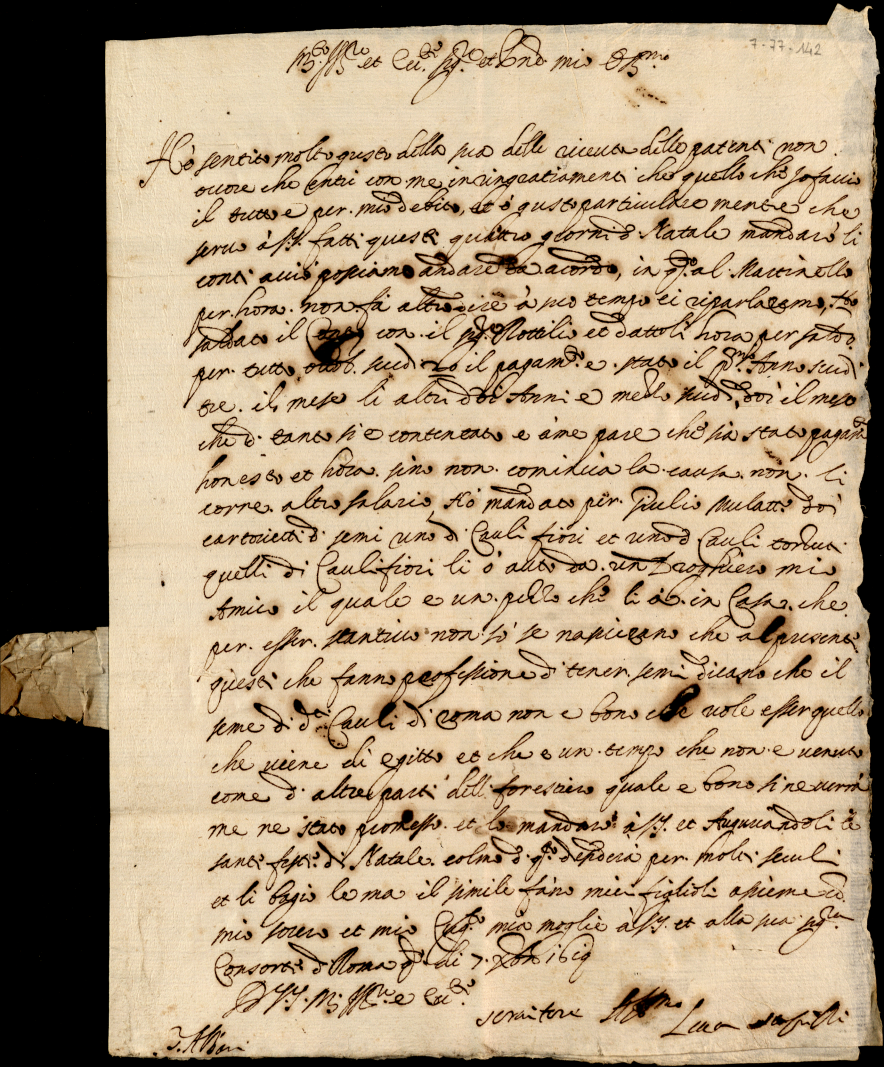 7-77-142
et Ecc.te Sig.r et mio
Hò sentito molto gusto della sua delle ricevute delle patenti non
occore che entri con me in ringratiamenti che quello che Jo faccio
il tutto e per mio debito, et è gusto particularmente che
servo à V.S. fatti questi quattro giorni di Natale mandarò li
conti acciò possiamo andare da acordo, in q.to al Martinello
per hora non fa altro dire à suo tempo ci riparlaremo, Ho
saldato il con il Sig. Rottili et dattoli hora per saldo
per tutto scudi 20 il pagam.to e stato il p.mo Anno scudi
tre il mese li altri doi Anni e mezzo scudi doi il mese
che di tanto si e contentato e a me pare che sia stato pagam.to
honesto et hora sin non comincia la causa non li
corre altro salario, Ho mandato per Giulio Mulatt. doi
cartoccetti di semi uno di Cauli fiori et uno di Cauli torsuti
quelli di Caulifiori li ò auto da un Droghiero mio
Amico il quale e un pezzo che li à in Casa che
per esser stanticio non sò se nasierano che al presente
questi che fanno professione di tener semi dicano che il
seme di d.ti Cauli di roma non e bono che vole esser quello
che viene di egitto et che e un tempo che non e venuto
come d' altre parti delli forestiero quale e bono si ne verrà
me ne stato promesso et lo mandarò à V.S. et Augurandoli le
sante feste di Natale colme di q.to desidera per molti seculi
et li bagio le ma il simile fano miei figlioli asieme co
mio socero et mio mia moglie à V.S. et alla sua Sig.ra
Consorte di Roma q. di 7. Xbre 1619
D V.S. M. Ill.re e Ecc.te
servitore
Luca